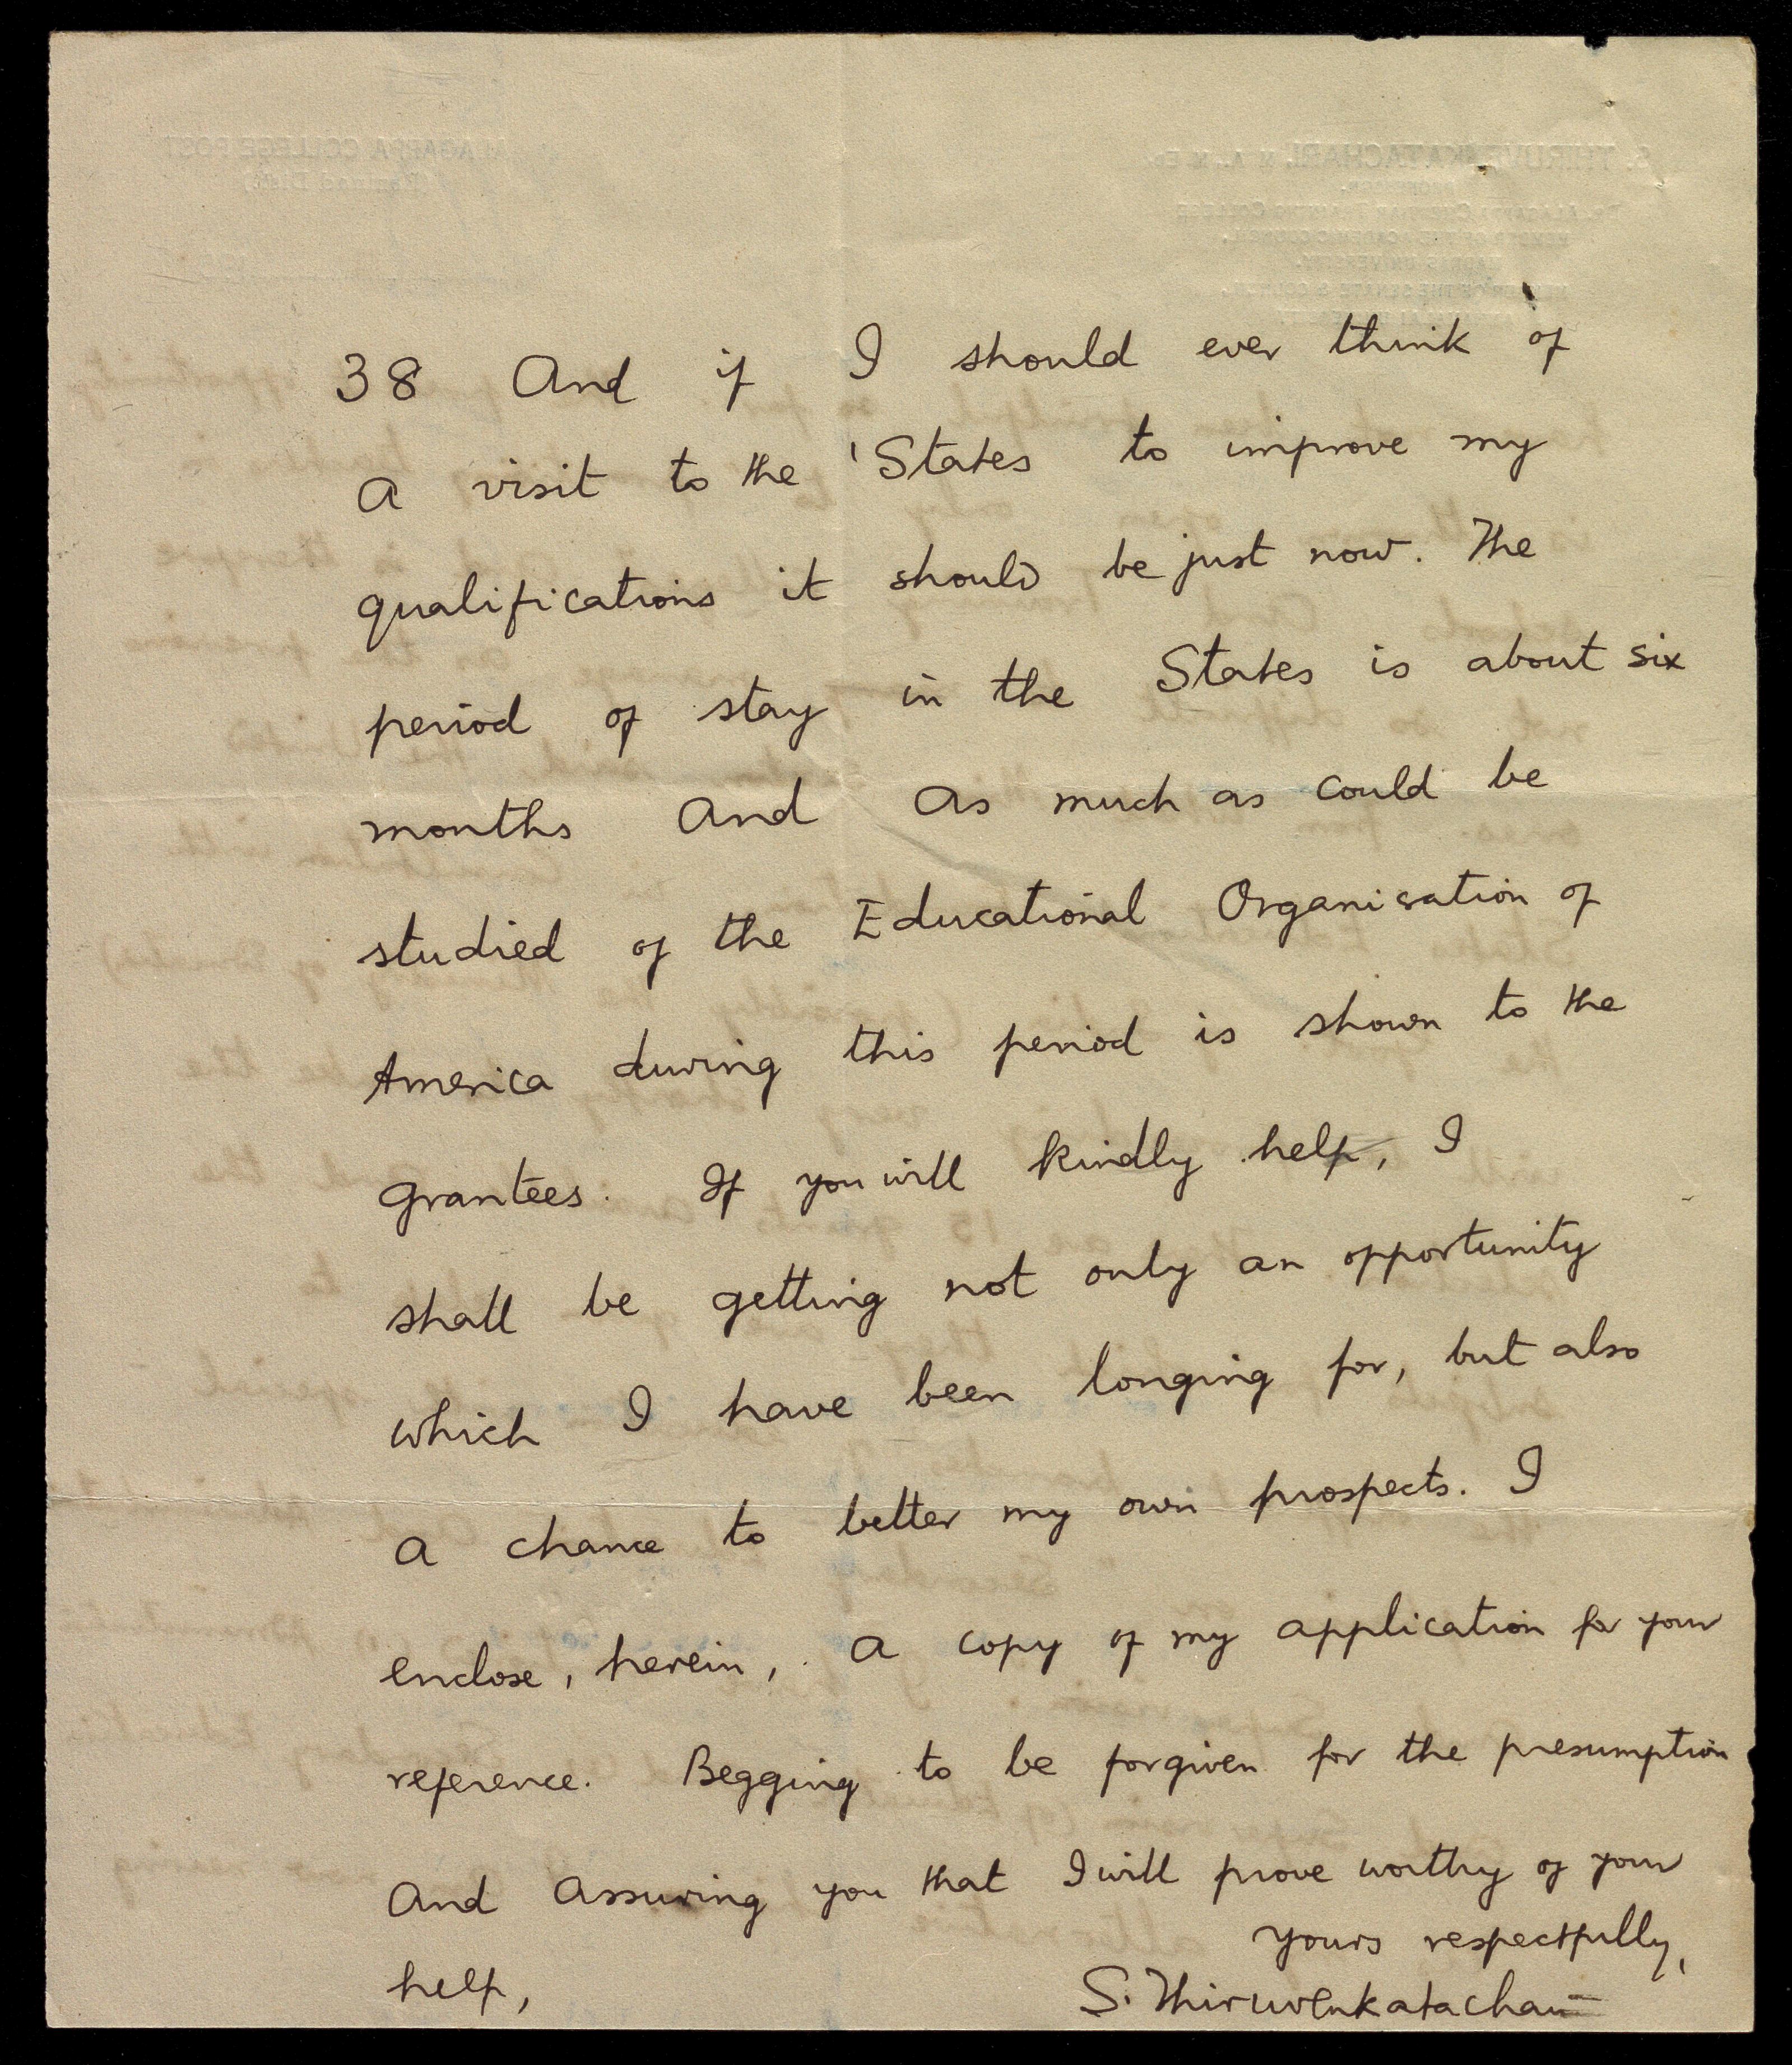 38 And if I should ever think of
a visit to the 'States to improve my
qualifications it should be just now. The
period of stay in the States is about six
months and as much as could be
studied of the Educational Organisation of
America during this period is shown to the
grantees. If you will kindly help, I
shall be getting not only an opportunity
which I have been longing for, but also
a chance to better my own prospects. I
enclose, herein, a copy of my application for your
reference. Begging to be forgiven for the presumption
and assuring you that I will prove worthy of your
help,
yours respectfully,
S. Thiruvenkatachari